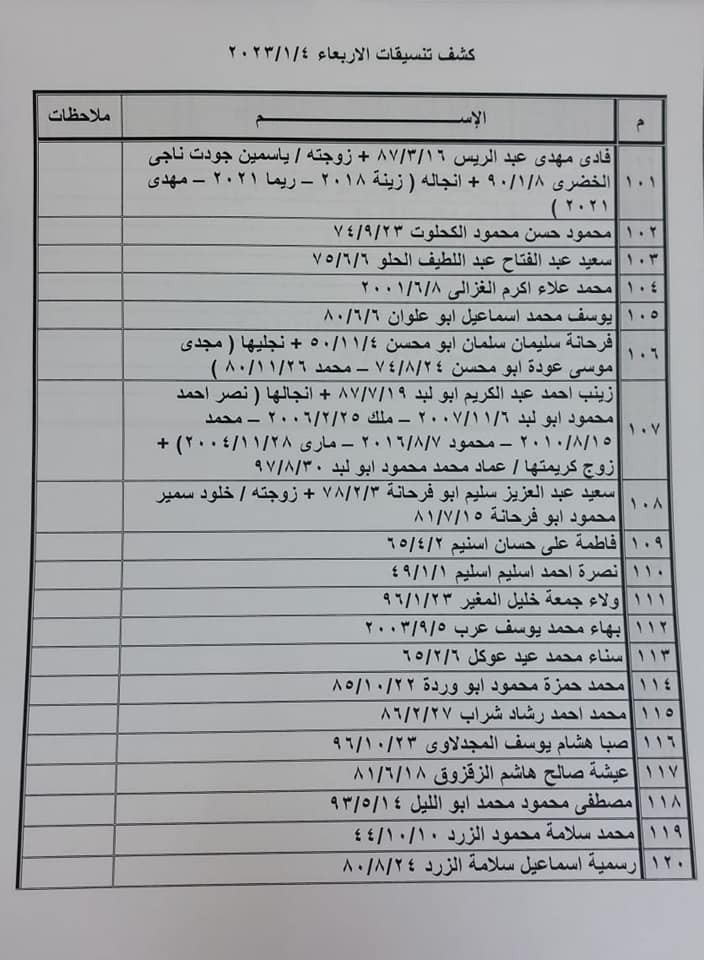 كشف تنسيقات الاربعاء ٢٠٢٣/١/٤
م الإســـــــــم ملاحظات
١٠١ فادى مهدى عبد الريس ٨٧/٣/١٦ + زوجته / ياسمين جودت ناجى
الخضرى ٩٠/١/٨ + انجاله ( زينة ٢٠١٨ – ريما ٢٠٢١ – مهدى
٢٠٢١ )
١٠٢ محمود حسن محمود الكحلوت ٧٤/٩/٢٣
١٠٣ سعيد عبد الفتاح عبد اللطيف الحلو ٧٥/٦/٦
١٠٤ محمد علاء اكرم الغزالى ٢٠٠١/٦/٨
١٠٥ يوسف محمد اسماعيل ابو علوان ٨٠/٦/٦
١٠٦ فرحانة سليمان سلمان ابو محسن ٥٠/١١/٤ + نجليها ( مجدى
موسى عودة ابو محسن ٧٤/٨/٢٤ – محمد ٨٠/١١/٢٦ )
١٠٧ زينب احمد عبد الكريم ابو لبد ٨٧/٧/١٩ + انجالها ( نصر احمد
محمود ابو لبد ٢٠٠٧/١١/٦ – ملك ٢٠٠٦/٢/٢٥ – محمد
٢٠١٠/٨/١٥ – محمود ٢٠١٦/٨/٧ – مارى ٢٠٠٤/١١/٢٨) +
زوج كريمتها / عماد محمد محمود ابو لبد ٩٧/٨/٣٠
١٠٨ سعيد عبد العزيز سليم ابو فرحانة ٧٨/٢/٣ + زوجته / خلود سمير
محمود ابو فرحانة ٨١/٧/١٥
١٠٩ فاطمة على حسان اسنيم ٦٥/٤/٢
١١٠ نصرة احمد اسليم اسليم ٤٩/١/١
١١١ ولاء جمعة خليل المغير ٩٦/١/٢٣
١١٢ بهاء محمد يوسف عرب ٢٠٠٣/٩/٥
١١٣ سناء محمد عيد عوكل ٦٥/٢/٦
١١٤ محمد حمزة محمود ابو وردة ٨٥/١٠/٢٢
١١٥ محمد احمد رشاد شراب ٨٦/٢/٢٧
١١٦ صبا هشام يوسف المجدلاوى ٩٦/١٠/٢٣
١١٧ عيشة صالح هاشم الزقزوق ٨١/٦/١٨
١١٨ مصطفى محمود محمد ابو الليل ٩٣/٥/١٤
١١٩ محمد سلامة محمود الزرد ٤٤/١٠/١٠
١٢٠ رسمية اسماعيل سلامة الزرد ٨٠/٨/٢٤